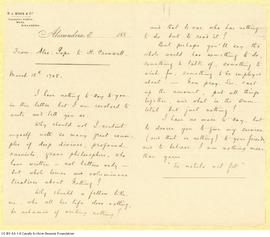 R. J. MOSS & Co
Alexandria, E. 188
From Alex. Pope to H. Cromwell
March 18th 1708.
I have nothing to say to you
in this letter but I am resolved to
write to tell you so.
Why should not I content
myself with so many great exam-
ples of deep divines, profound
casuists, grave philosophers, who
have written, not letters only,
but whole tomes and voluminous
treatises about Nothing?
Why should a fellow like
me, who all his life does nothing,
be ashamed of writing nothing?
and that to one who has nothing
to do but to read it?
But perhaps you'll say, the
whole world has something to do,
something to talk of, something to
wish for, something to be employed
about: but pray,
up the amount, put all these
together, and what is the sum
total but just nothing?
I have no more to say, but
to desire you to give my service
(and that is nothing) to your friends,
and to believe I am nothing more
than yours
"Ex nihilo nil fit"